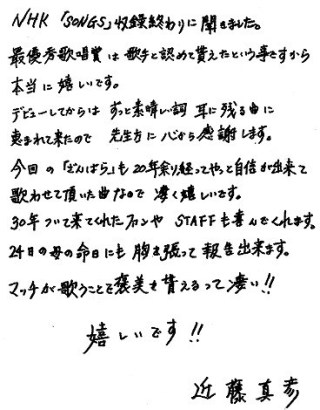 NHK「SONGS」収録終わりに聞きました。
最優秀歌唱賞は歌手と認めて貰えたという事ですから
本当に嬉しいです。
デビューしてからは ずっと素晴しい詞 耳に残る曲に
恵まれて来たので 先生方に心から感謝します。
今回の「ざんばら」も20年余り経ってやっと自信が出来て
歌わせて頂いた曲なので 凄く嬉しいです。
30年ついて来てくれたファンや STAFFも喜んでくれます。
24日の母の命日にも 胸を張って 報告出来ます。
マッチが歌うことで褒美を貰えるって凄い!!
嬉しいです!!
近藤真彦